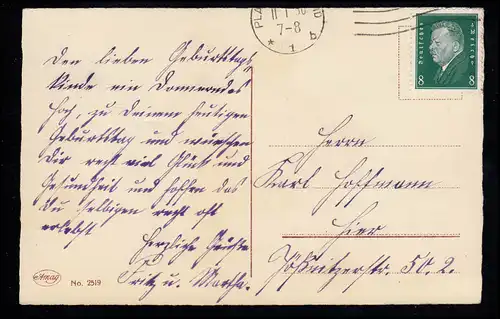 Den lieben Geburtstags
kinde ein Donnerndes
Hoch, zu Deinem heutigen
Geburtstag und wünschen
Dir recht viel Glück und
Gesundheit und hoffen das
Du selbigen recht oft
erlebst
Herzliche Grüße
Fritz u. Martha.
Amag
No. 2519
PLA
11 1 30
7-8
* 1 b
Deutsches Reich
8 8
Herrn
Karl Hoffmann
Hier
Jößnitzerstr. 50. 2.